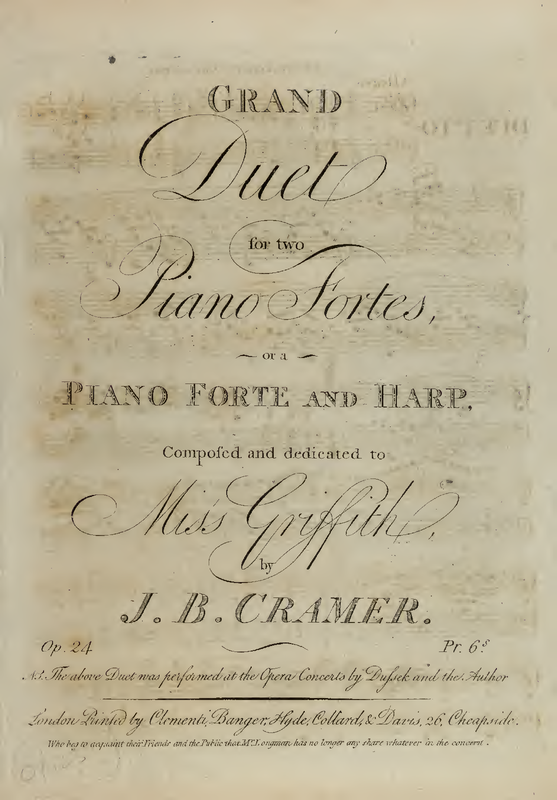 GRAND
Duet
for two
Piano Fortes,
or a
PIANO FORTE AND HARP.
Compoſed and dedicated to
Miſs Griffith,
by
J. B. CRAMER.
Op. 24 Pr. 6ˢ
The above Duet was performed at the Opera Concerts by Duſſek and the Author
London Printed by Clementi, Banger, Hyde, Collard, & Davis, 26, Cheapside.
Who beg to acquaint their Friends and the Public that Mr. Longman has no longer any share whatever in the concern.